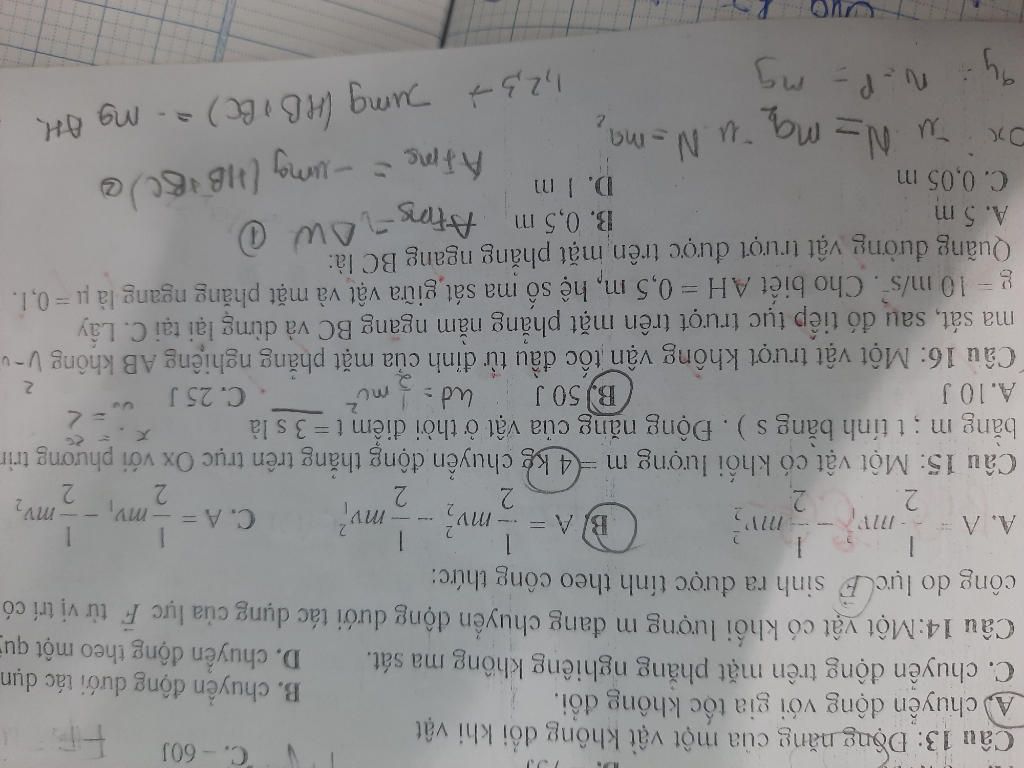 C. – 60J
Câu 13: Động năng của một vật không đổi khi vật
A. chuyển động với gia tốc không đổi.
B. chuyển động dưới tác dụn
C. chuyển động trên mặt phẳng nghiêng không ma sát.
D. chuyển động theo một quỹ
Câu 14: Một vật có khối lượng m đang chuyển động dưới tác dụng của lực F⃗ từ vị trí có
công do lực F⃗ sinh ra được tính theo công thức:
A. A = 1/2 mv₁² − 1/2 mv₂² B. A = 1/2 mv₂² − 1/2 mv₁² C. A = 1/2 mv₁ − 1/2 mv₂
Câu 15: Một vật có khối lượng m = 4 kg chuyển động thẳng trên trục Ox với phương trìn
bằng m ; t tính bằng s ) . Động năng của vật ở thời điểm t = 3 s là
A. 10 J B. 50 J Wđ = 1/2 mv² C. 25 J
Câu 16: Một vật trượt không vận tốc đầu từ đỉnh của mặt phẳng nghiêng AB không
ma sát, sau đó tiếp tục trượt trên mặt phẳng nằm ngang BC và dừng lại tại C. Lấy
g = 10 m/s². Cho biết AH = 0,5 m, hệ số ma sát giữa vật và mặt phẳng ngang là μ = 0,1.
Quãng đường vật trượt được trên mặt phẳng ngang BC là:
A. 5 m B. 0,5 m AFms = ΔW ①
C. 0,05 m D. 1 m AFms = − μmg (HB + BC) ②
Ox : -μ N = ma₂ -μ N = ma₂
oy : N = P = mg 1,2,3 → μmg (HB + BC) = mg AH